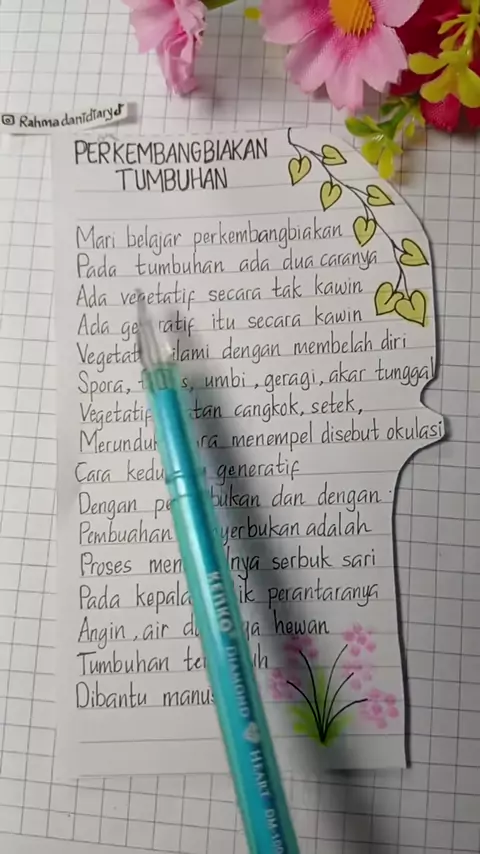 Rahmadanidiary
PERKEMBANGBIAKAN
TUMBUHAN
Mari belajar perkembangbiakan
Pada tumbuhan ada dua caranya
Ada vegetatif secara tak kawin
Ada generatif itu secara kawin
Vegetatif alami dengan membelah diri
Spora, umbi, geragi, akar tunggal
Vegetatif cangkok, setek,
Merunduk menempel disebut okulasi
Cara generatif
Dengan dan dengan
Pembuahan adalah
Proses serbuk sari
Pada kepala perantaranya
Angin, air hewan
Tumbuhan
Dibantu
KENKO
DIAMOND
HEART